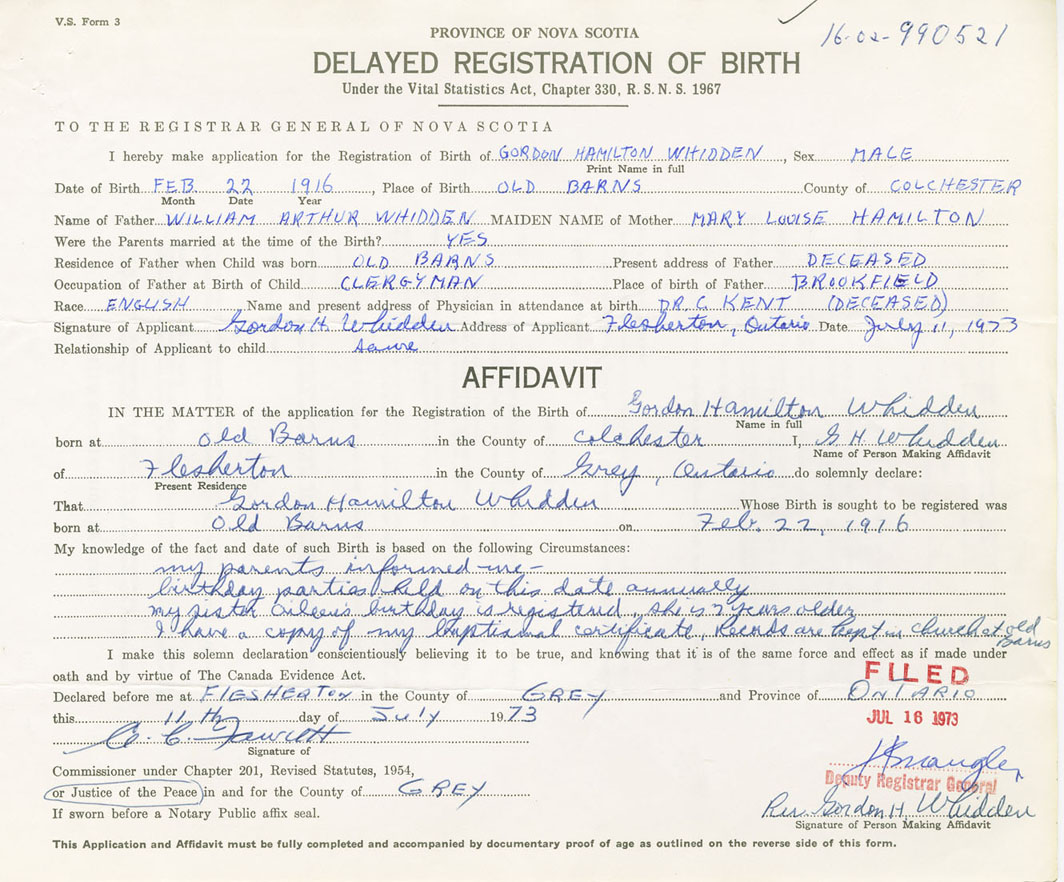 V.S. Form 3
16-02-990521
PROVINCE OF NOVA SCOTIA
DELAYED REGISTRATION OF BIRTH
Under the Vital Statistics Act, Chapter 330, R. S. N. S. 1967
TO THE REGISTRAR GENERAL OF NOVA SCOTIA
I hereby make application for the Registration of Birth of GORDON HAMILTON WHIDDEN, Sex MALE
Print Name in full
Date of Birth FEB. 22 1916, Place of Birth OLD BARNS County of COLCHESTER
Month Date Year
Name of Father WILLIAM ARTHUR WHIDDEN MAIDEN NAME of Mother MARY LOUISE HAMILTON
Were the Parents married at the time of the Birth? YES
Residence of Father when Child was born OLD BARNS Present address of Father DECEASED
Occupation of Father at Birth of Child CLERGYMAN Place of birth of Father BROOKFIELD
Race ENGLISH Name and present address of Physician in attendance at birth DR. C. KENT (DECEASED)
Signature of Applicant Gordon H. Whidden Address of Applicant Flesherton, Ontario Date July 11, 1973
Relationship of Applicant to child same
AFFIDAVIT
IN THE MATTER of the application for the Registration of the Birth of Gordon Hamilton Whidden
Name in full
born at Old Barns in the County of Colchester I, G. H. Whidden
Name of Person Making Affidavit
of Flesherton in the County of Grey, Ontario do solemnly declare:
Present Residence
That Gordon Hamilton Whidden Whose Birth is sought to be registered was
born at Old Barns on Feb. 22, 1916
My knowledge of the fact and date of such Birth is based on the following Circumstances:
my parents informed me-
birthday parties held on this date annually
my sister Eileen's birthday is registered, she is 2 years older
I have a copy of my baptismal certificate, Records are kept in church at old Barns
I make this solemn declaration conscientiously believing it to be true, and knowing that it is of the same force and effect as if made under
oath and by virtue of The Canada Evidence Act.
FILED
Declared before me at FLESHERTON in the County of GREY and Province of ONTARIO
this 11th day of July 1973
JUL 16 1973
Signature of
Commissioner under Chapter 201, Revised Statutes, 1954,
Deputy Registrar General
or Justice of the Peace in and for the County of GREY
Rev. Gordon H. Whidden
If sworn before a Notary Public affix seal.
Signature of Person Making Affidavit
This Application and Affidavit must be fully completed and accompanied by documentary proof of age as outlined on the reverse side of this form.